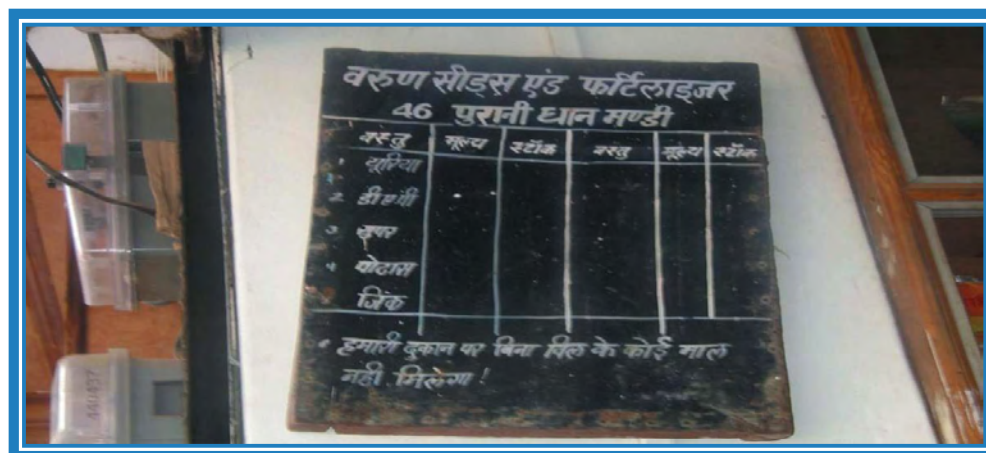 वरुण सीड्स एंड फर्टिलाइजर
46 पुरानी धान मण्डी
वस्तु मूल्य स्टॉक वस्तु मूल्य स्टॉक
1 यूरिया
2 डी ए पी
3 सुपर
4 पोटास
जिंक
हमारी दुकान पर बिना बिल के कोई माल
नही मिलेगा!
440437